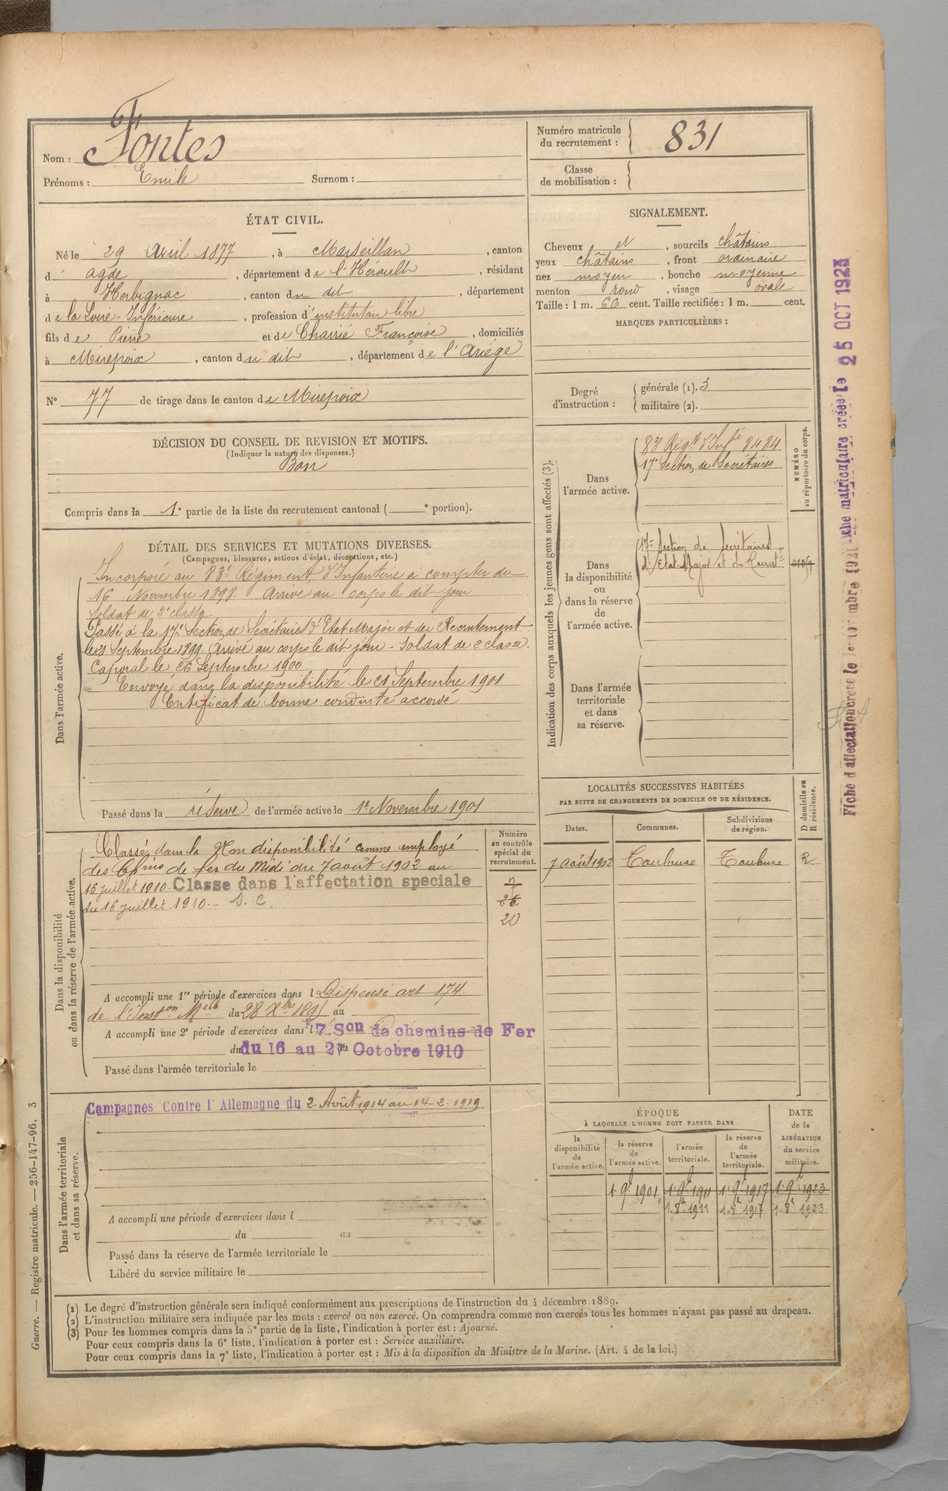 Nom : Fontes
Prénoms : Emile Surnom :
Numéro matricule
du recrutement : 831
Classe
de mobilisation :
ÉTAT CIVIL.
Né le 29 Avril 1877, à Marseillan, canton
d' Agde, département de l'Hérault, résidant
à Herbignac, canton du dit, département
de la Loire-Inférieure, profession d'instituteur libre
fils de Pierre et de Charrié Françoise, domiciliés
à Mirepoix, canton du dit, département de l'Ariège
N° 77 de tirage dans le canton de Mirepoix
SIGNALEMENT.
Cheveux et, sourcils châtains
yeux châtains, front ordinaire
nez moyen, bouche moyenne
menton rond, visage ovale
Taille : 1 m. 60 cent. Taille rectifiée : 1 m. cent.
MARQUES PARTICULIÈRES :
Degré
d'instruction :
générale (1). 3
militaire (2).
DÉCISION DU CONSEIL DE REVISION ET MOTIFS.
(Indiquer la nature des dispenses.)
Bon
Compris dans la 1e partie de la liste du recrutement cantonal ( e portion).
DÉTAIL DES SERVICES ET MUTATIONS DIVERSES.
(Campagnes, blessures, actions d'éclat, décorations, etc.)
Dans l'armée active.
Incorporé au 83e Régiment d'Infanterie à compter du
16 Novembre 1898 Arrivé au corps le dit jour
Soldat de 2e classe
Passé à la 17e Section de Secrétaires d'Etat Major et du Recrutement
le 23 Septembre 1899 Arrivé au corps le dit jour - Soldat de 2 classe
Caporal le 26 Septembre 1900
Envoyé dans la disponibilité le 21 Septembre 1901
Certificat de bonne conduite accordé
Passé dans la réserve de l'armée active le 1er Novembre 1901
Indication des corps auxquels les jeunes gens sont affectés (3).
NUMÉRO
au répertoire du corps.
Dans
l'armée active.
83 Régt d'Infie 8484
17e Section de Secrétaires
Dans
la disponibilité
ou
dans la réserve
de
l'armée active.
17e Section de Secrétaires
d'Etat Major et du Recrutt
Dans l'armée
territoriale
et dans
sa réserve.
LOCALITÉS SUCCESSIVES HABITÉES
PAR SUITE DE CHANGEMENTS DE DOMICILE OU DE RÉSIDENCE.
Dates. Communes. Subdivisions
de région. D domicile ou
R résidence.
7 août 1902 Toulouse Toulouse R
Dans la disponibilité
ou dans la réserve de l'armée active.
Numéro
au contrôle
spécial du
recrutement.
Classé dans la Non disponibilité comme employé
des Ch.ins de fer du Midi du 7 août 1902 au
16 juillet 1910. Classe dans l'affectation spéciale
du 16 juillet 1910. - S. C.
20
A accompli une 1re période d'exercices dans l Dispensé art 174
de l'Inston Melle du 28 Xbre au
A accompli une 2e période d'exercices dans l 7 Son de chemins de Fer
du 16 au 27 Octobre 1910
Passé dans l'armée territoriale le
Dans l'armée territoriale
et dans sa réserve.
Campagnes Contre l'Allemagne du 2 Août 1914 au 14-2-1919
A accompli une période d'exercices dans l
du au
Passé dans la réserve de l'armée territoriale le
Libéré du service militaire le
ÉPOQUE
À LAQUELLE L'HOMME DOIT PASSER DANS
DATE
de la
LIBÉRATION
du service
militaire.
la
disponibilité
de
l'armée active.
la réserve
de
l'armée active.
l'armée
territoriale.
la réserve
de
l'armée
territoriale.
1.9b 1901 1.9b 1911 1.9b 1917 1.9b 1923
1.8r 1911 1.8r 1917 1.8r 1923
(1) Le degré d'instruction générale sera indiqué conformément aux prescriptions de l'instruction du 4 décembre 1889.
(2) L'instruction militaire sera indiquée par les mots : exercé ou non exercé. On comprendra comme non exercés tous les hommes n'ayant pas passé au drapeau.
(3) Pour les hommes compris dans la 5e partie de la liste, l'indication à porter est : Ajourné.
Pour ceux compris dans la 6e liste, l'indication à porter est : Service auxiliaire.
Pour ceux compris dans la 7e liste, l'indication à porter est : Mis à la disposition du Ministre de la Marine. (Art. 4 de la loi.)
Guerre. — Registre matricule. — 256-147-96. 3
25 OCT 1923